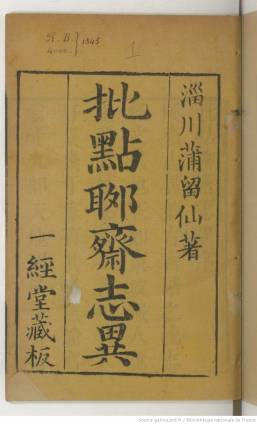 淄川蒲留仙著
批點聊齋志異
一經堂藏板
1843
1
Source gallica.bnf.fr / Bibliothèque nationale de France